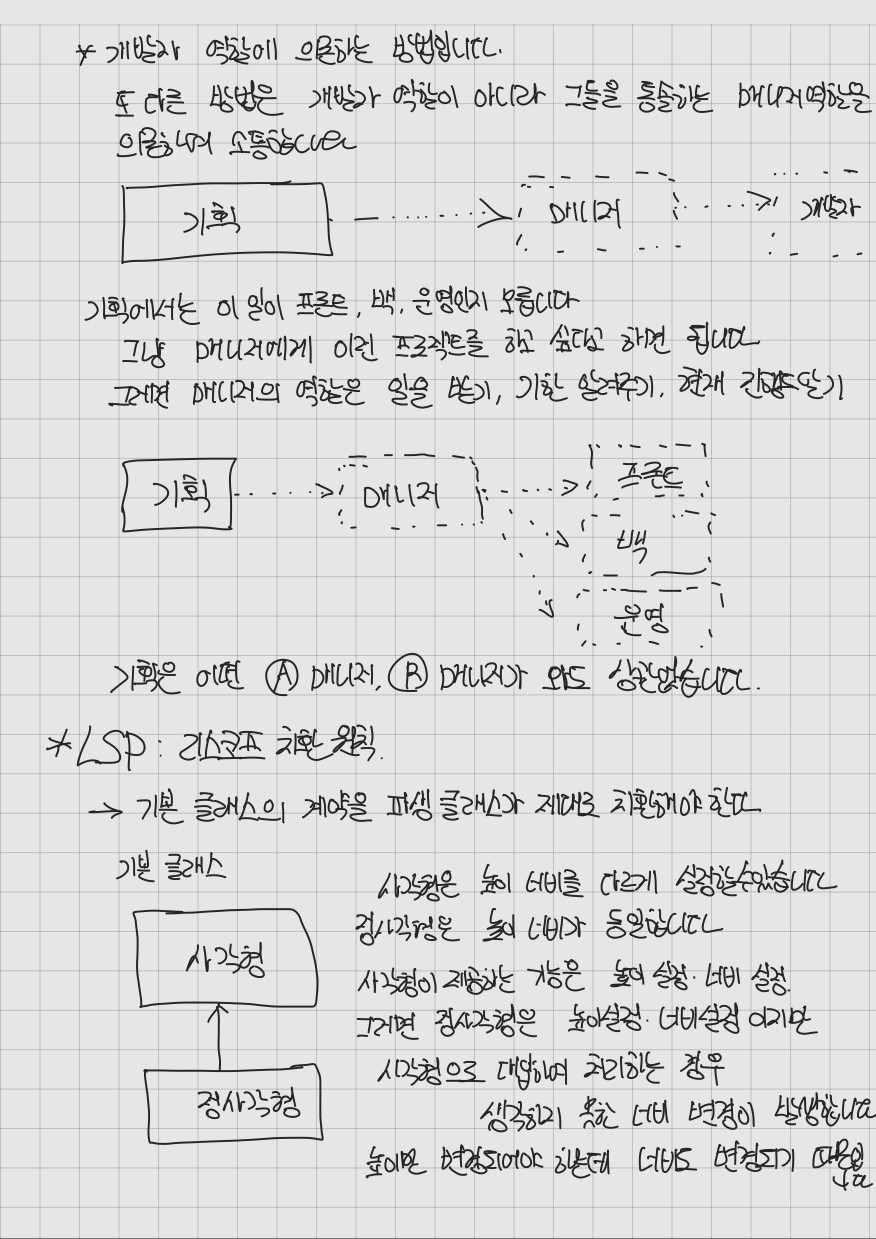 * 개발자 역할에 의존하는 방법입니다.
또 다른 방법은 개발자 역할이 아니라 그들을 통솔하는 매니저역할을
의존하여 소통합니다
기획
매니저
개발자
기획에서는 이 일이 프론트, 백, 운영인지 모릅니다
그냥 매니저에게 이런 프로젝트를 하고 싶다고 하면 됩니다
그러면 매니저의 역할은 일을 받기, 기한 알려주기, 현재
기획
매니저
프론트
백
운영
기획은 어떤 Ⓐ 매니저, Ⓑ 매니저가 와도 상관없습니다.
* LSP : 리스코프 치환 원칙.
→ 기본 클래스의 계약을 파생 클래스가 제대로 치환해야 한다
기본 클래스
사각형
정사각형
사각형은 높이 너비를 다르게 설정할수있습니다
정사각형은 높이 너비가 동일합니다
사각형이 제공하는 기능은 높이 설정·너비 설정.
그러면 정사각형은 높이설정·너비설정 이지만
사각형으로 대입하여 처리하는 경우
생각하지 못한 너비 변경이 발생합니다
높이만 변경되어야 하는데 너비도 변경되기 때문입
니다